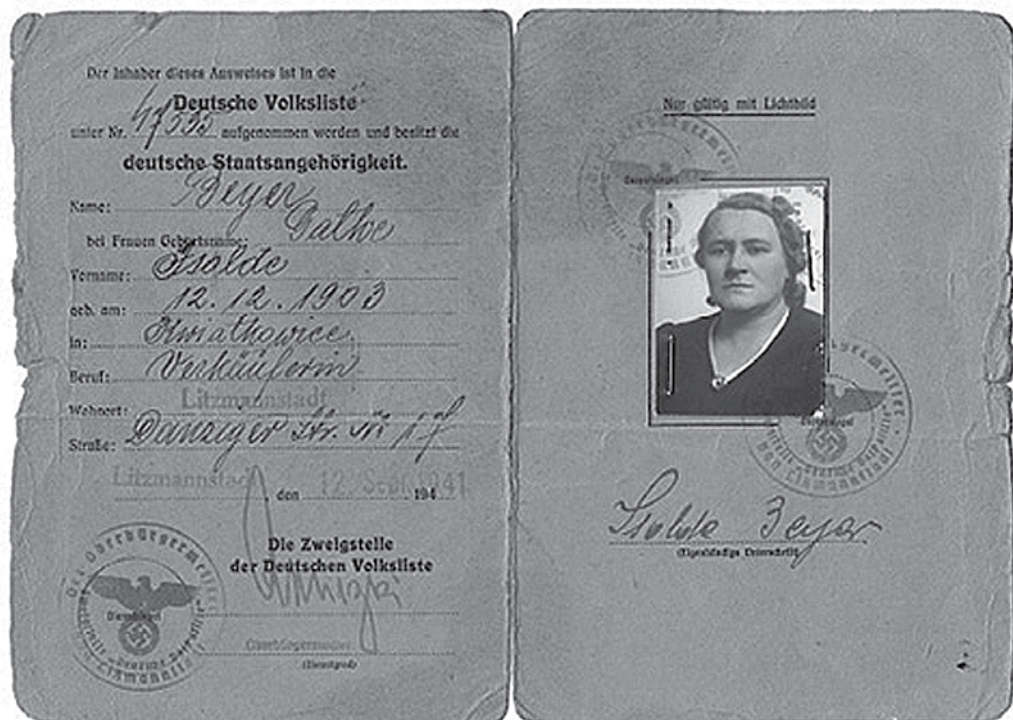 Der Inhaber dieses Ausweises ist in die
Deutsche Volksliste
unter Nr. 47555 aufgenommen worden und besitzt die
deutsche Staatsangehörigkeit.
Name: Beyer
bei Frauen Geburtsname:
Vorname: Isolde
geb. am: 12.12.1903
in: Kwiatkowice
Beruf: Verkäuferin
Wohnort: Litzmannstadt
Straße: Danziger Str. 17
Litzmannstadt, den 12. Sep. 1941
Die Zweigstelle
der Deutschen Volksliste
Der Oberbürgermeister
Dienstsiegel
Litzmannstadt
Oberbürgermeister
(Dienstgrad)
Nur gültig mit Lichtbild
Isolde Beyer
(Eigenhändige Unterschrift)